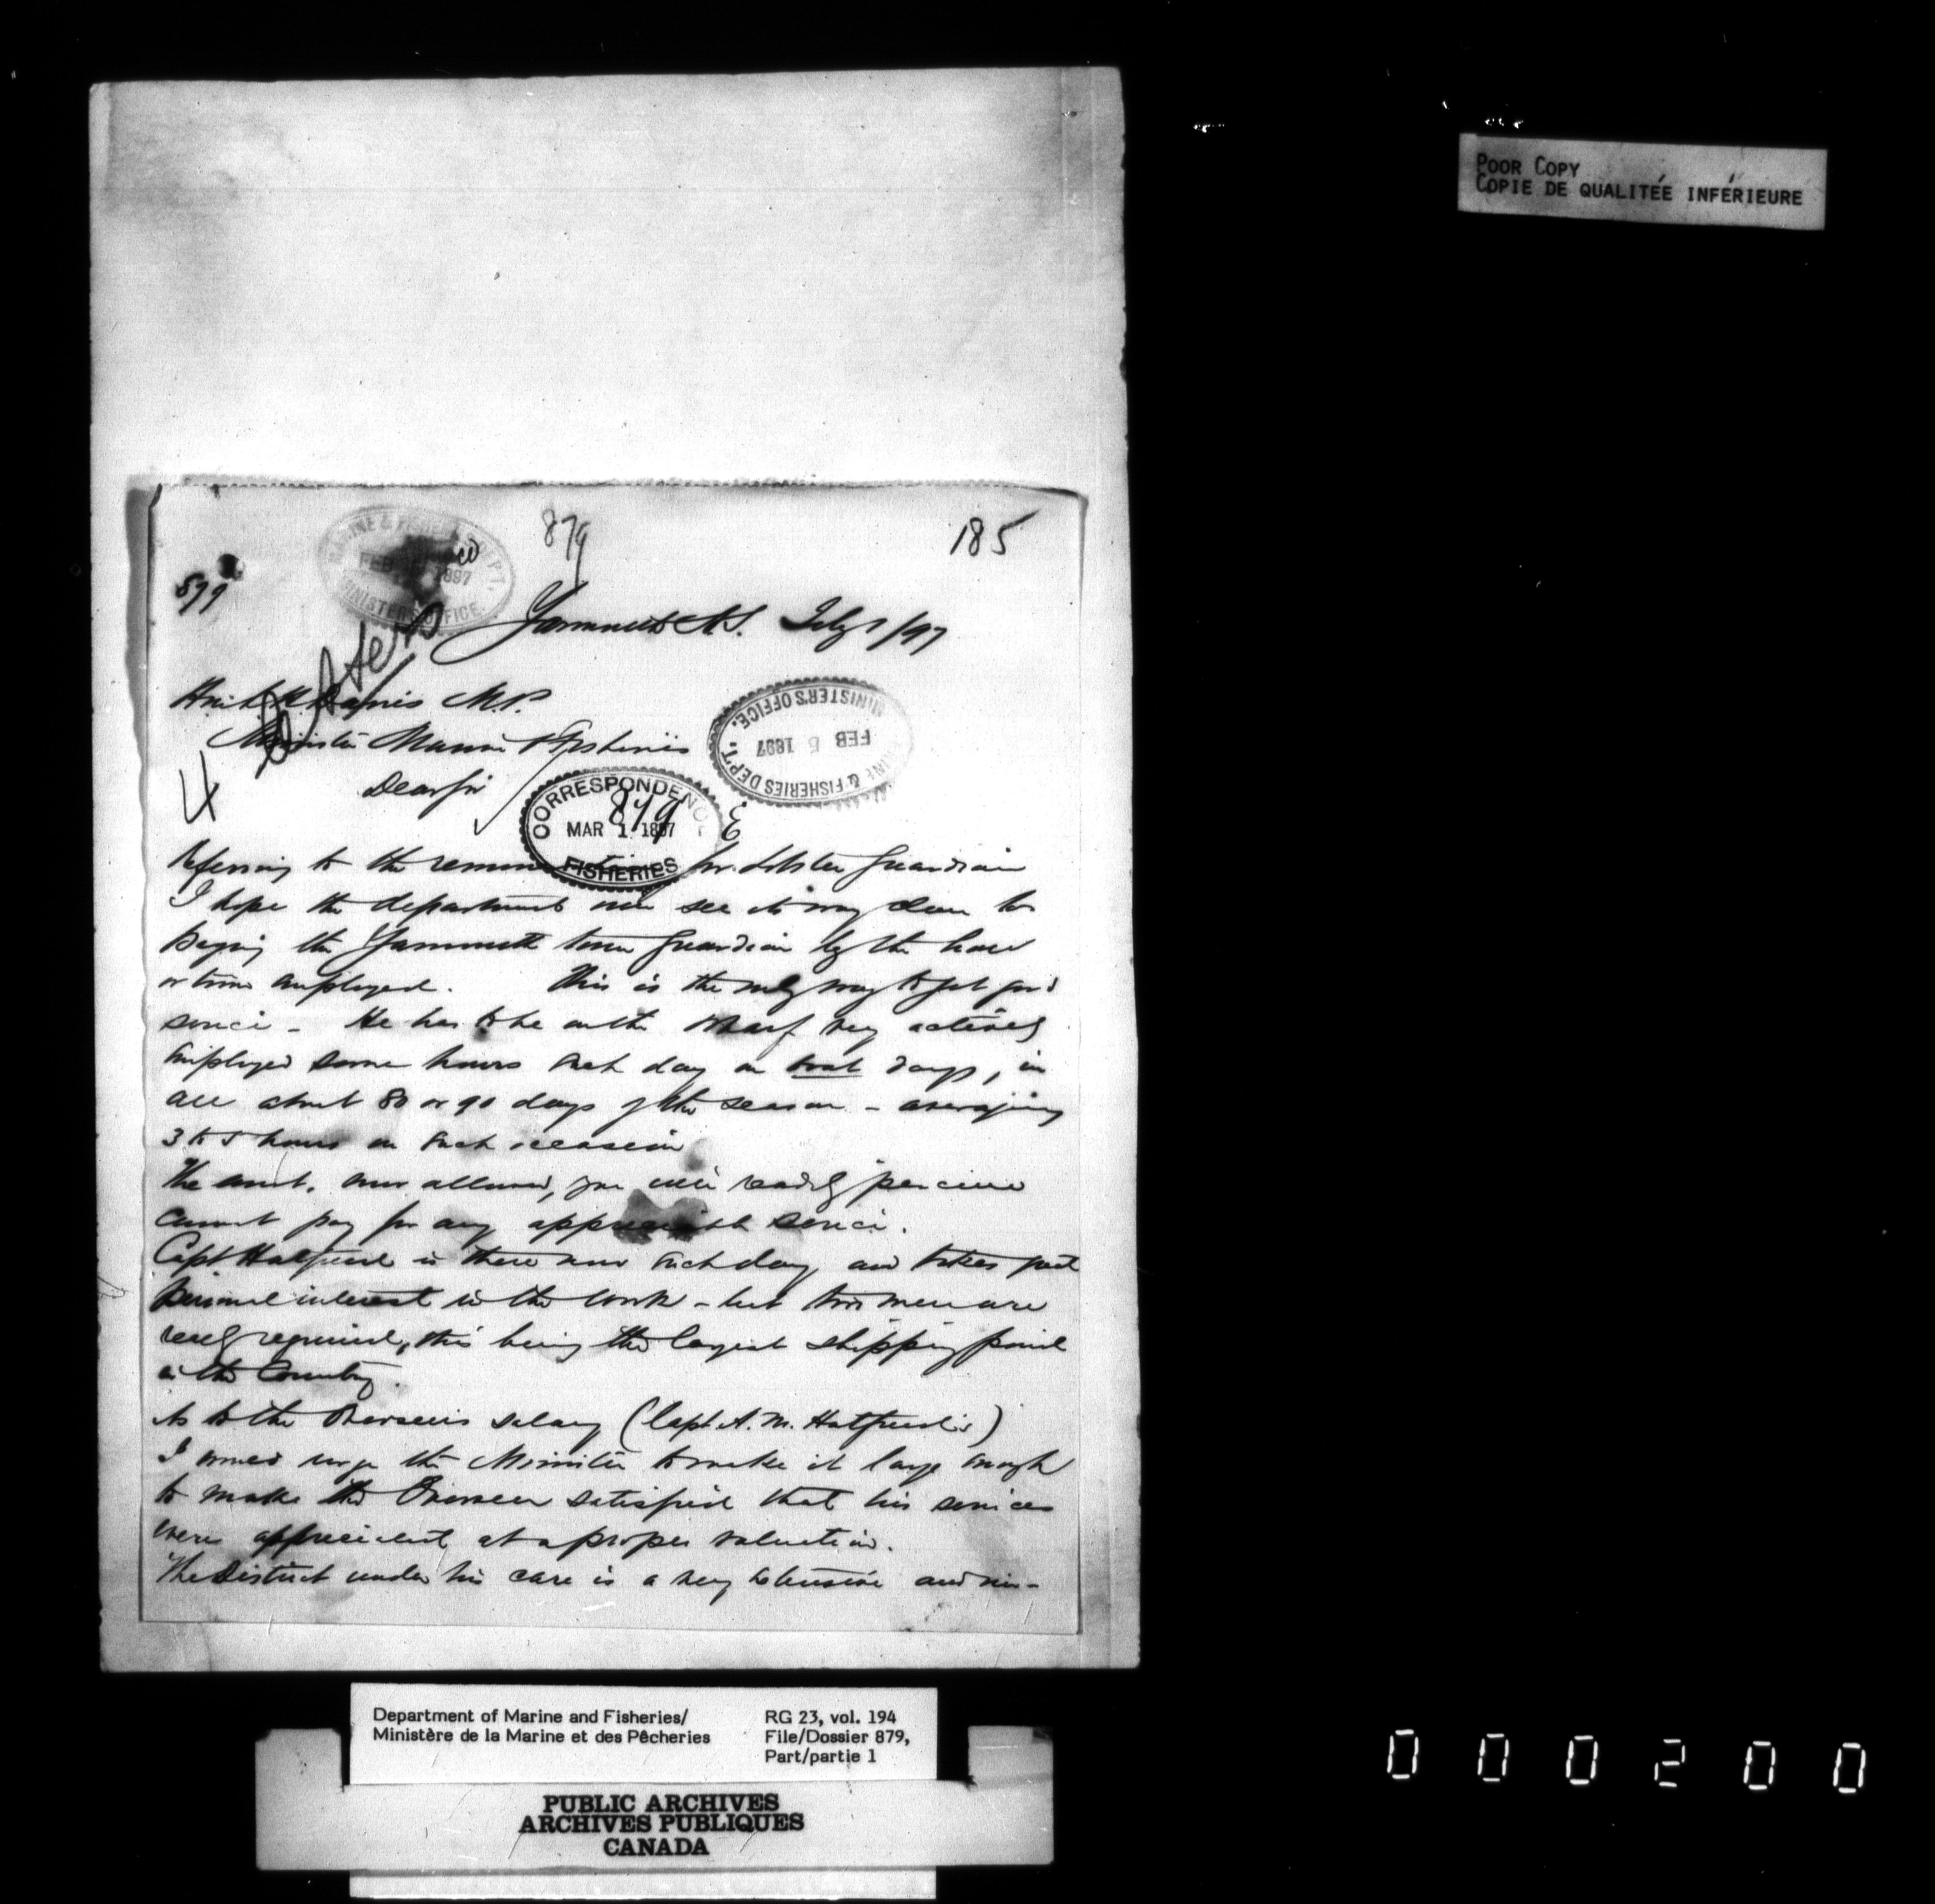 POOR COPY
COPIE DE QUALITÉE INFÉRIEURE
879
185
MARINE & FISHERIES DEPT.
FEB 1897
MINISTER'S OFFICE.
879
Yarmouth N.S. Feby 1/97
Hon L. H. Davies M.P.
Minister Marine & Fisheries
MARINE & FISHERIES DEPT.
FEB 5 1897
MINISTER'S OFFICE.
Dear Sir
4
CORRESPONDENCE
879
MAR 1 1897
FISHERIES
Referring to the for Lobster Guardian
I hope the department will see its way clear to
paying the Yarmouth town Guardian by the hour
or time employed. This is the only way to get good
service - He has to be on the wharf very actively
employed some hours each day on boat days, in
all about 80 or 90 days of the season - averaging
3 to 5 hours on each occasion
The amt. now allowed, you will readily perceive
cannot pay for any appreciable service.
Capt Hatfield is there now each day and takes great
personal interest in the work - but two men are
really required, this being the largest shipping point
in the County.
As to the Overseers salary (Capt. A. M. Hatfield's)
I would urge the Minister to make it large enough
to make the Overseer satisfied that his services
were appreciated at a proper valuation.
The District under his care is a very extensive and im-
Department of Marine and Fisheries/
Ministère de la Marine et des Pêcheries
RG 23, vol. 194
File/Dossier 879,
Part/partie 1
PUBLIC ARCHIVES
ARCHIVES PUBLIQUES
CANADA
000200